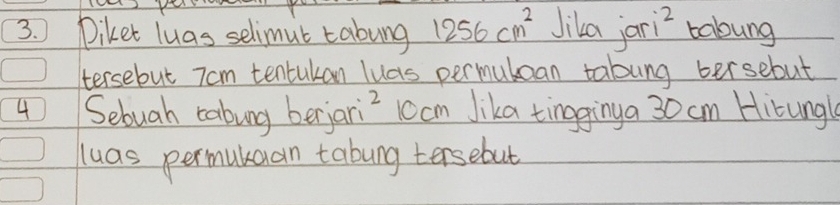 3. Diket luas selimut tabung 1256 cm² Jika jari² tabung
tersebut 7cm tentukan luas permukaan tabung tersebut
4 Sebuah tabung berjari² 10cm Jika tingginya 30 cm Hitungla
luas permukaan tabung tersebut